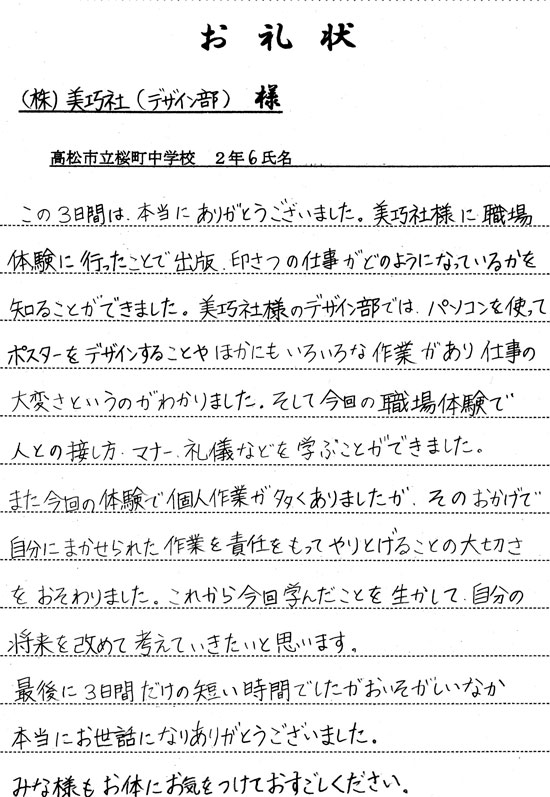 お礼状
(株)美巧社(デザイン部) 様
高松市立桜町中学校 2年6氏名
この3日間は、本当にありがとうございました。美巧社様に職場
体験に行ったことで出版、印さつの仕事がどのようになっているかを
知ることができました。美巧社様のデザイン部では、パソコンを使って
ポスターをデザインすることやほかにもいろいろな作業があり仕事の
大変さというのがわかりました。そして今回の職場体験で
人との接し方、マナー、礼儀などを学ぶことができました。
また今回の体験で個人作業が多くありましたが、そのおかげで
自分にまかせられた作業を責任をもってやりとげることの大切さ
をおそわりました。これから今回学んだことを生かして、自分の
将来を改めて考えていきたいと思います。
最後に3日間だけの短い時間でしたがおいそがしいなか
本当にお世話になりありがとうございました。
みな様もお体にお気をつけておすごしください。